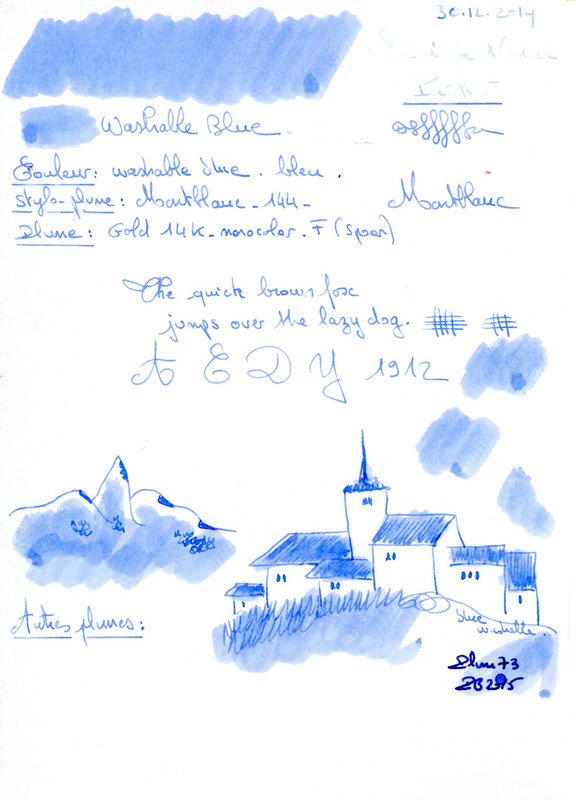 30.12.2014
Washable Blue
Couleur: washable blue. bleu.
Stylo-plume: Montblanc - 144 -
Montblanc
Plume: Gold 14K - monocolor. F
The quick brown fox
jumps over the lazy dog.
A E D Y 1912
Autres plumes:
blue
washable.